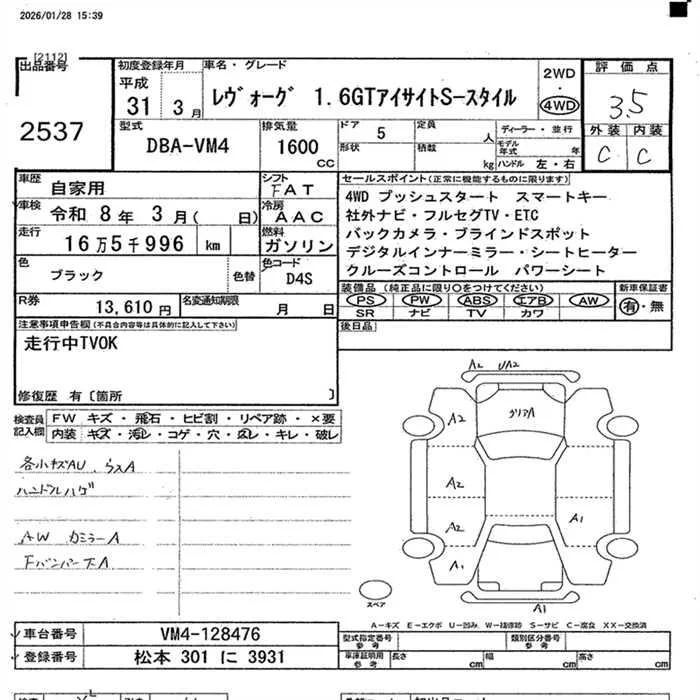 2026/01/28 15:39
[2112]
出品番号
2537
初度登録年月
平成
31 3月
車名・グレード
レヴォーグ 1.6GTアイサイトS-スタイル
2WD
・
4WD
評価点
3.5
外装 内装
C C
型式
DBA-VM4
排気量
1600
cc
ドア 5
形状
定員 人
積載 kg
ディーラー・並行
モデル年式 年
ハンドル 左・右
車歴
自家用
シフト
FAT
車検 令和 8年 3月( 日)
冷房
AAC
走行
16万5千996 km
燃料
ガソリン
色
ブラック
色替
色コード
D4S
R券
13,610円
名変通知期限
月 日
セールスポイント(正常に機能するものに限ります)
4WD プッシュスタート スマートキー
社外ナビ・フルセグTV・ETC
バックカメラ・ブラインドスポット
デジタルインナーミラー・シートヒーター
クルーズコントロール パワーシート
装備品(純正品に限り○をつけてください)
PS PW ABS エアB AW
SR ナビ TV カワ
新車保証書
有・無
後日品
注意事項申告欄(不具合内容等は具体的に記入して下さい)
走行中TVOK
修復歴 有〔箇所 〕
検査員記入欄
FW キズ・飛石・ヒビ割・リペア跡・×要
内装 キズ・汚レ・コゲ・穴・凹レ・キレ・破レ
各小キズAU、うスA
ハンドルハゲ
AW カミラーA
Fバンパー下A
A2 UA2
A2
クリアA
A2
A2
A1
A1
A1
スペア
A-キズ E-エクボ U-凹み W-補修跡 S-サビ C-腐食 XX-交換済
車台番号 VM4-128476
登録番号 松本 301 に 3931
型式指定番号
参考
類別区分番号
参考
車庫証明用
参考
長さ cm 幅 cm 高さ cm